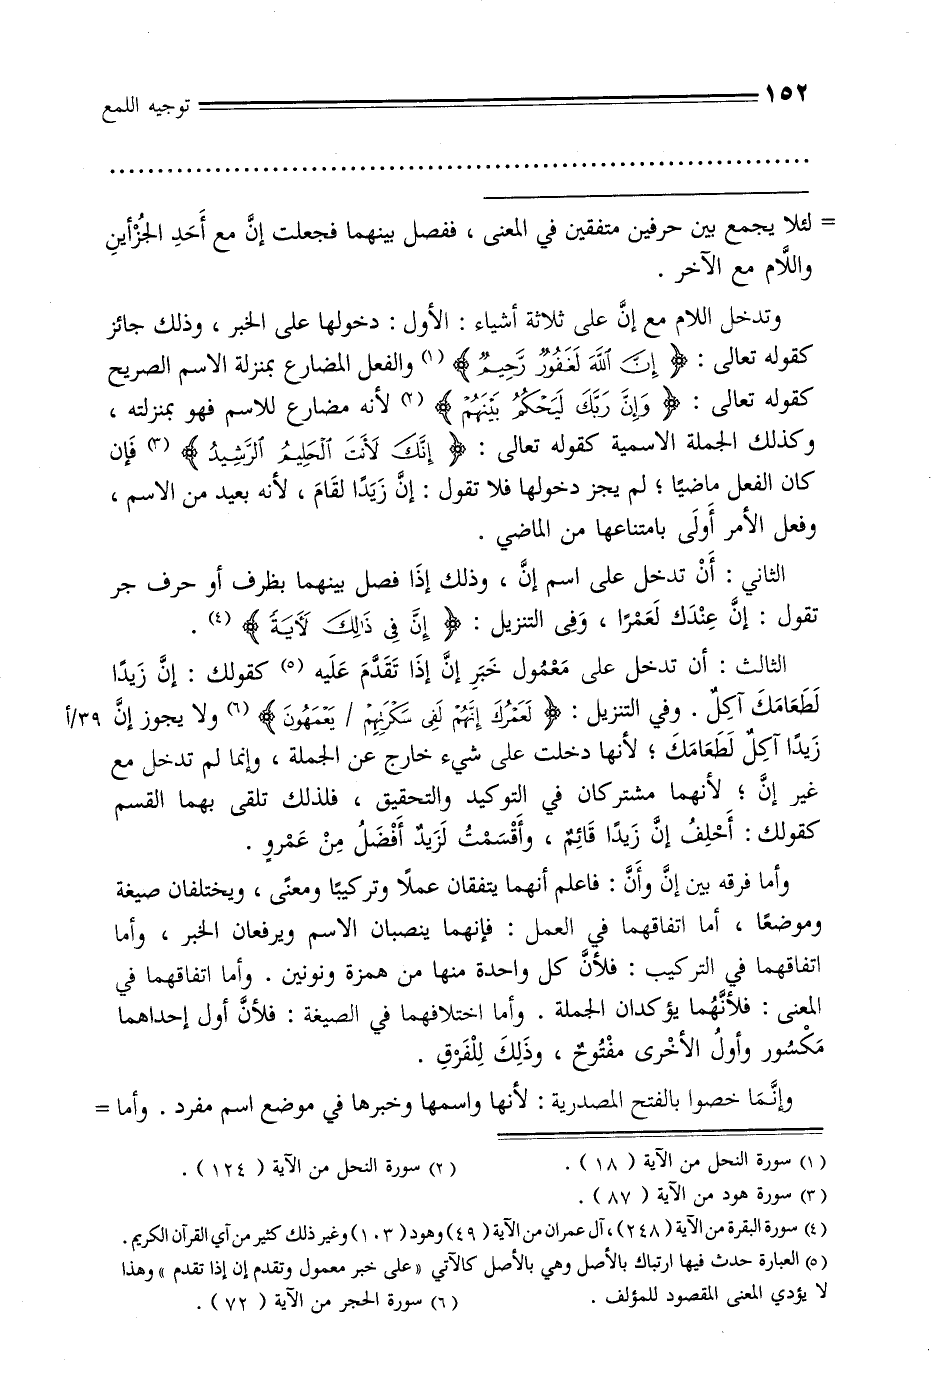 ١٥٢ توجيه اللمع
= لئلا يجمع بين حرفين متفقين في المعنى ، ففصل بينهما فجعلت إنَّ مع أَحَدِ الجُزْأينِ
واللَّام مع الآخر .
وتدخل اللام مع إنَّ على ثلاثة أشياء : الأول : دخولها على الخبر ، وذلك جائز
كقوله تعالى : ﴿ إِنَّ اللَّهَ لَغَفُورٌ رَّحِيمٌ ﴾ (١) والفعل المضارع بمنزلة الاسم الصريح
كقوله تعالى : ﴿ وَإِنَّ رَبَّكَ لَيَحْكُمُ بَيْنَهُمْ ﴾ (٢) لأنه مضارع للاسم فهو بمنزلته ،
وكذلك الجملة الاسمية كقوله تعالى : ﴿ إِنَّكَ لَأَنتَ الْحَلِيمُ الرَّشِيدُ ﴾ (٣) فَإن
كان الفعل ماضيًا ؛ لم يجز دخولها فلا تقول : إنَّ زَيَدًا لقَامَ ، لأنه بعيد من الاسم ،
وفعل الأمر أَولَى بامتناعها من الماضي .
الثاني : أَنْ تدخل على اسم إنَّ ، وذلك إذَا فصل بينهما بظرف أو حرف جر
تقول : إنَّ عِنْدَك لَعَمْرًا ، وَفِى التنزيل : ﴿ إِنَّ فِي ذَٰلِكَ لَآيَةً ﴾ (٤) .
الثالث : أن تدخل على مَعْمُول خَبَرِ إنَّ إذَا تَقَدَّمَ عَلَيه (٥) كقولك : إنَّ زَيدًا
لَطَعَامَكَ آكِلٌ . وفي التنزيل : ﴿ لَعَمْرُكَ إِنَّهُمْ لَفِى سَكْرَتِهِمْ / يَعْمَهُونَ ﴾ (٦) ولا يجوز إنَّ ٣٩/أ
زَيدًا آكِلٌ لَطَعَامَكَ ؛ لأنها دخلت على شيء خارج عن الجملة ، وإنما لم تدخل مع
غير إنَّ ؛ لأنهما مشتركان في التوكيد والتحقيق ، فلذلك تلقى بهما القسم
كقولك : أَحْلِفُ إنَّ زَيدًا قَائِمٌ ، وأَقْسَمْتُ لَزَيدٌ أَفْضَلُ مِنْ عَمْروٍ .
وأما فرقه بين إنَّ وأَنَّ : فاعلم أنهما يتفقان عملًا وتركيبًا ومعنًى ، ويختلفان صيغة
وموضعًا ، أما اتفاقهما في العمل : فإنهما ينصبان الاسم ويرفعان الخبر ، وأما
اتفاقهما في التركيب : فلأنَّ كل واحدة منها من همزة ونونين . وأما اتفاقهما في
المعنى : فلأنَّهُما يؤكدان الجملة . وأما اختلافهما في الصيغة : فلأنَّ أول إحداهما
مَكْسُور وأولُ الأخْرى مفْتُوحٌ ، وذَلِكَ لِلْفَرْقِ .
وإنَّمَا خصوا بالفتح المصدرية : لأنها واسمها وخبرها في موضع اسم مفرد . وأما =
(١) سورة النحل من الآية ( ١٨ ) . (٢) سورة النحل من الآية ( ١٢٤ ) .
(٣) سورة هود من الآية ( ٨٧ ) .
(٤) سورة البقرة من الآية ( ٢٤٨ ) ، آل عمران من الآية ( ٤٩ ) وهود ( ١٠٣ ) وغير ذلك كثير من آي القرآن الكريم .
(٥) العبارة حدث فيها ارتباك بالأصل وهي بالأصل كالآتي « على خبر معمول وتقدم إن إذا تقدم » وهذا
لا يؤدي المعنى المقصود للمؤلف . (٦) سورة الحجر من الآية ( ٧٢ ) .